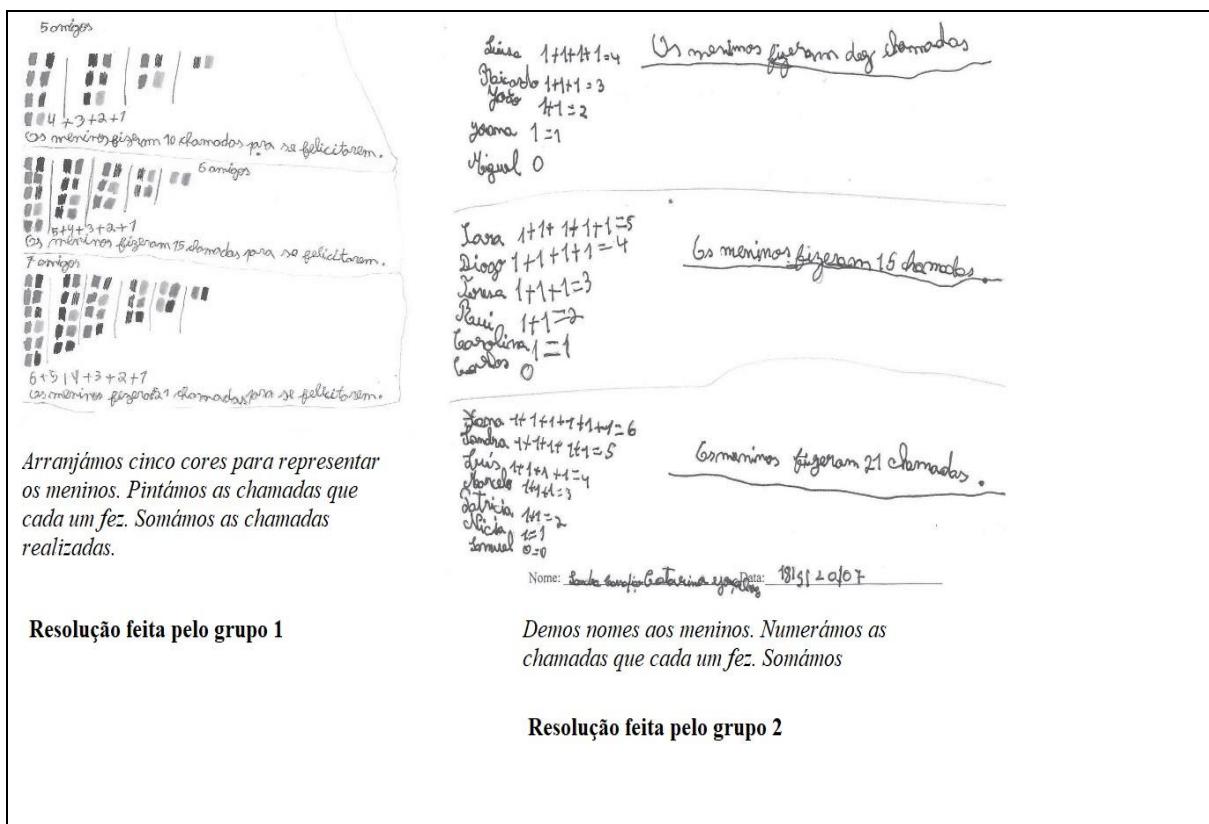 5 amigos
4+3+2+1
Os meninos fizeram 10 chamadas para se felicitarem.
6 amigos
5+4+3+2+1
Os meninos fizeram 15 chamadas para se felicitarem.
7 amigos
6+5+4+3+2+1
Os meninos fizeram 21 chamadas para se felicitarem.
Arranjámos cinco cores para representar
os meninos. Pintámos as chamadas que
cada um fez. Somámos as chamadas
realizadas.
Resolução feita pelo grupo 1
Luísa 1+1+1+1=4
Ricardo 1+1+1=3
João 1+1=2
Joana 1=1
Miguel 0
Os meninos fizeram dez chamadas
Sara 1+1+1+1+1=5
Diogo 1+1+1+1=4
Teresa 1+1+1=3
Rui 1+1=2
Carolina 1=1
Carlos 0
Os meninos fizeram 15 chamadas.
Joana 1+1+1+1+1+1=6
Sandra 1+1+1+1+1=5
Luís 1+1+1+1=4
Marcelo 1+1+1=3
Patrícia 1+1=2
1=1
Samuel 0=0
Os meninos fizeram 21 chamadas.
Nome: Catarina Data:
Demos nomes aos meninos. Numerámos as
chamadas que cada um fez. Somámos
Resolução feita pelo grupo 2